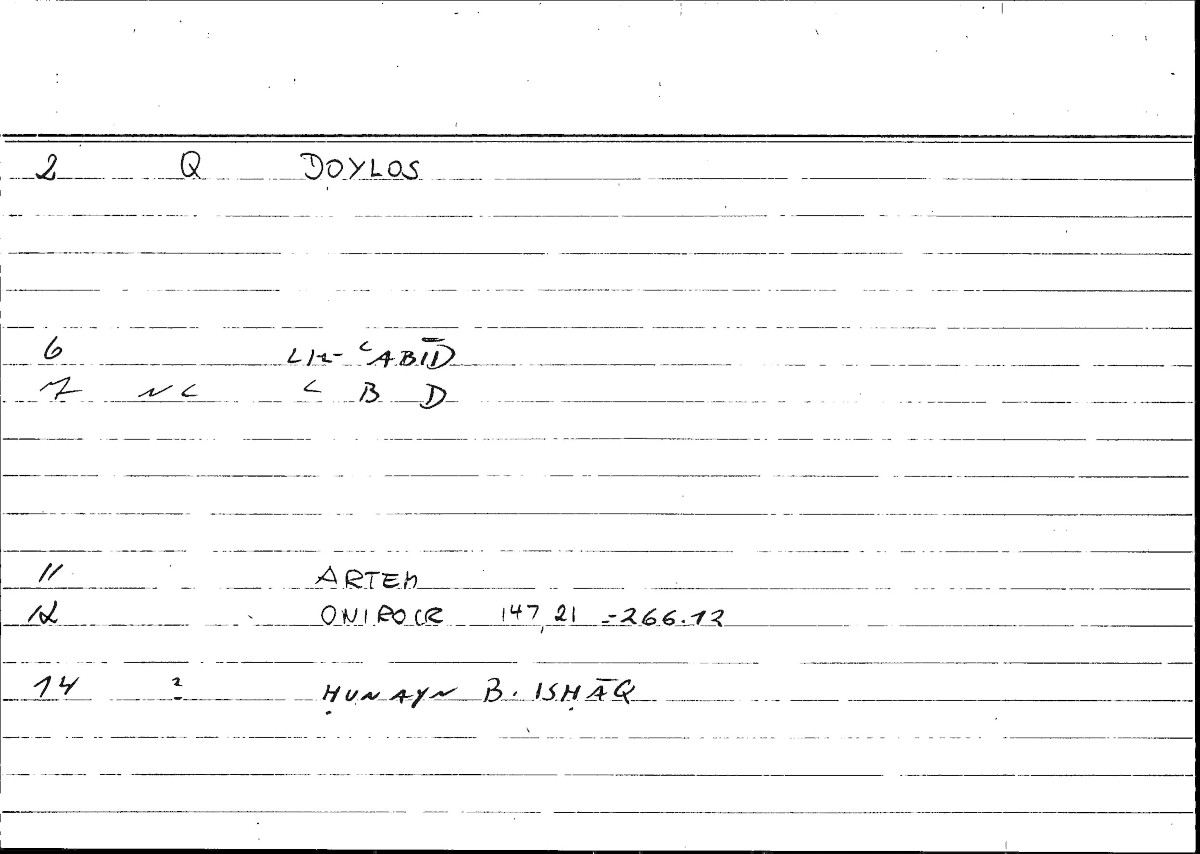 2 Q DOYLOS
6 LI- ʿABĪD
7 NC ʿ B D
11 ARTEM
12 ONIROCR 147,21 - 266.12
14 2 ḤUNAYN B. ISḤĀQ